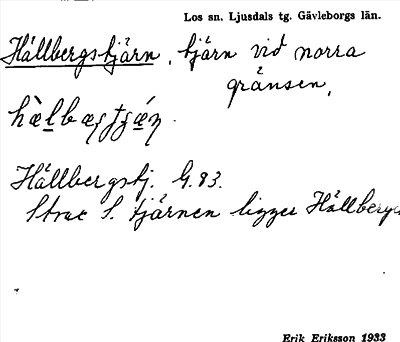 Los sn. Ljusdals tg. Gävleborgs län.
Hållbergstjärn, tjärn vid norra
gränsen.
Hållbergstj. G. 93.
Strax S. tjärnen ligger Hållberge
Erik Eriksson 1933